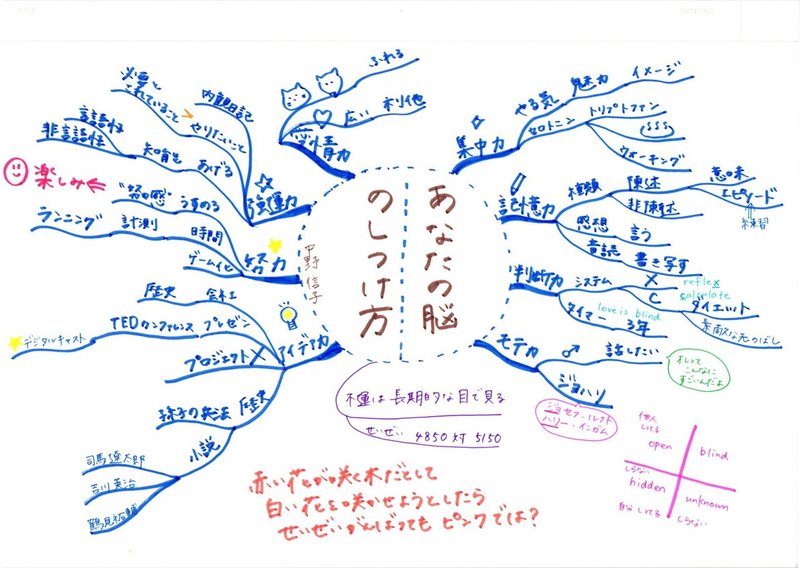 あなたの脳
のしつけ方
中野信子
集中力
やる気
魅力
イメージ
セロトニン
トリプトファン
ウォーキング
記憶力
種類
陳述
意味
エピソード
練習
非陳述
思想
言う
音読
書き写す
判断力
システム
X
reflex
C
calculate
ダイエット
素敵な先のばし
タイマー
love is blind
3年
モテ力
♂
話したい
オレって
こんなに
すごいんだよ
ジョハリ
ジョセフ・ルフト
ハリー・インガム
他人
しってる
open
blind
しらない
hidden
unknown
自分 しってる
しらない
愛情力
ふれる
広い
利他
強運力
内観日記
やりたいこと
必要と
されていること
あげる
知育も
言語性
非言語性
努力
うすのろ
"努力感"
楽しみ
時間
計測
ランニング
ゲーム化
アイデア力
歴史
プレゼン
TEDカンファレンス
デジタルキャスト
プロジェクトX
歴史
孫子の兵法
小説
司馬遼太郎
吉川英治
鶴見祐輔
不運は長期的な目で見る
せいぜい 4850対5150
赤い花が咲く木だとして
白い花を咲かせようとしたら
せいぜいがんばってもピンクでは?